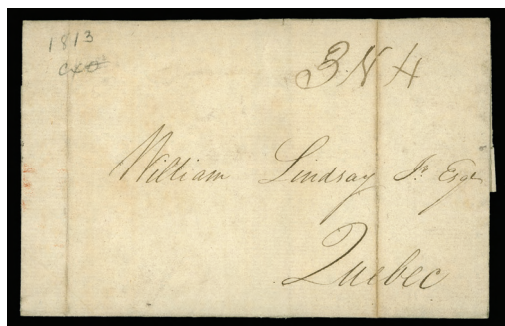 1813
3 N 4
William Lindsay Jr Esqr
Quebec